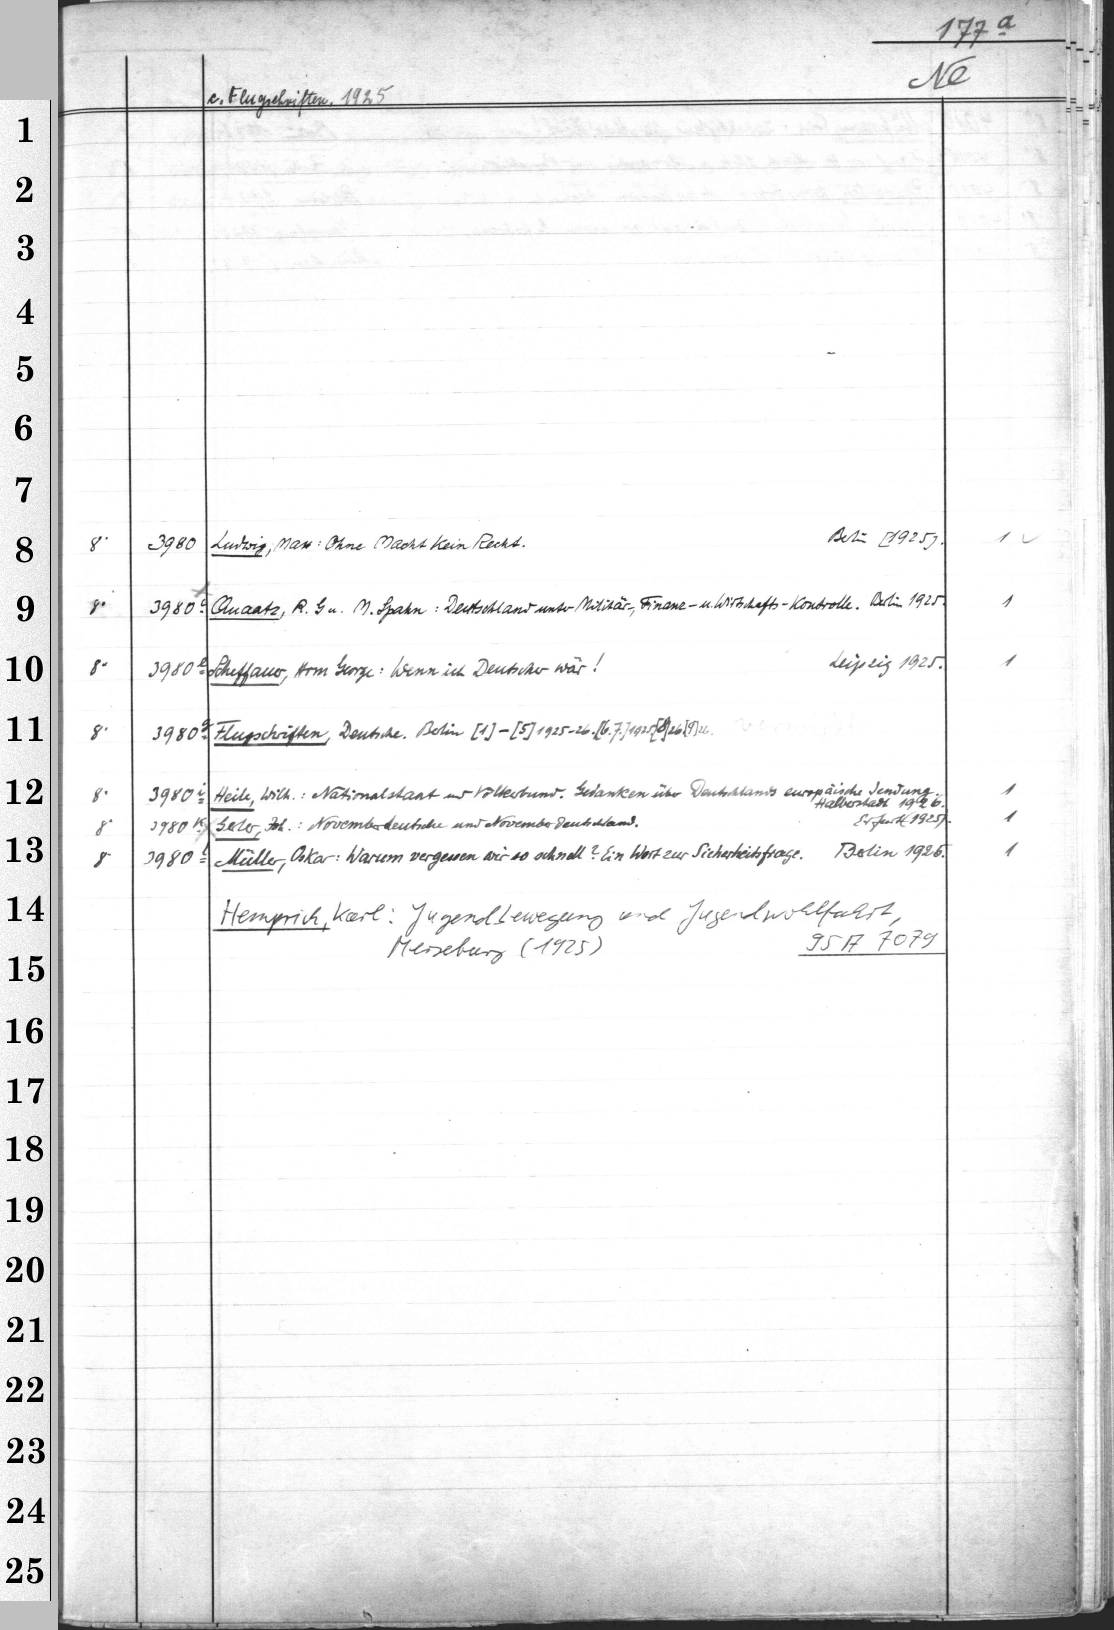 177 a
Ne
c. Flugschriften. 1925
1
2
3
4
5
6
7
8 8° 3980 Ludwig, Max: Ohne Macht kein Recht. Berlin [1925]. 1
9 8° 3980 c Quaatz, R. G. u. M. Spahn: Deutschland unter Militär-, Finanz- u. Wirtschafts-Kontrolle. Berlin 1925. 1
10 8° 3980 e Scheffauer, Herm George: Wenn ich Deutscher wär! Leipzig 1925. 1
11 8° 3980 g Flugschriften, Deutsche. Berlin [1]-[5] 1925-26. [6.7.] 1925 [8] 26 [9] 26.
12 8° 3980 i Heile, Wilh.: Nationalstaat und Völkerbund. Gedanken über Deutschlands europäische Sendung. 1
Halberstadt 1926.
8° 3980 k Joh.: Novemberdeutsche und Novemberdeutschland. Erfurt (1925). 1
13 8° 3980 l Müller, Oskar: Warum vergessen wir so schnell? Ein Wort zur Sicherheitsfrage. Berlin 1926. 1
14 Hemprich, Karl: Jugendbewegung und Jugendwohlfahrt,
Merseburg (1925) 95 A 7079
15
16
17
18
19
20
21
22
23
24
25